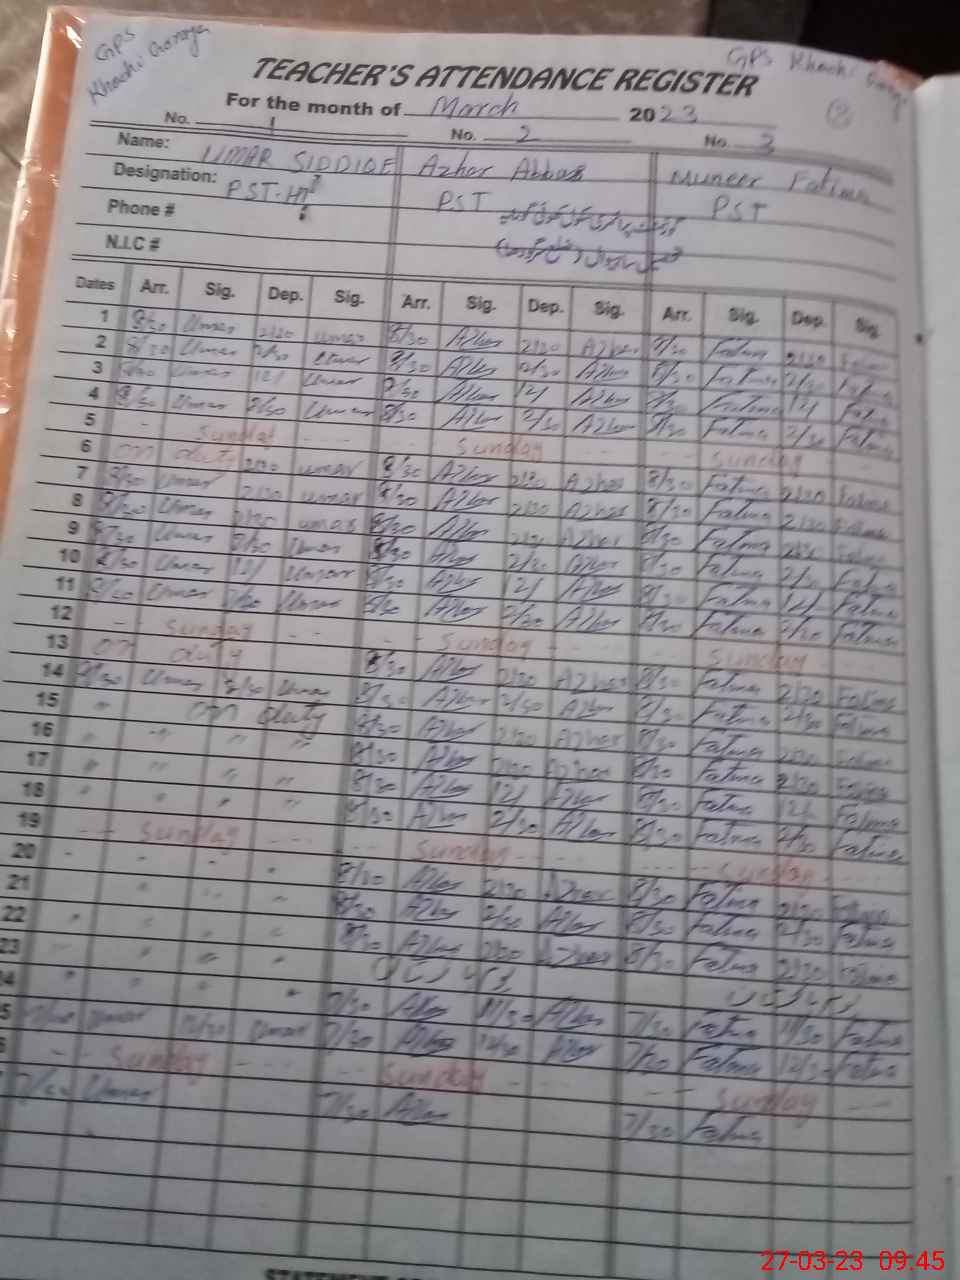 GPS
GPS Khochi
TEACHER'S ATTENDANCE REGISTER
For the month of March 2023
No. 1 No. 2 No. 3
Name: UMAR SIDDIQE Azhar Abbas Muneer Fatima
Designation: PST-HT PST PST
Phone #
N.I.C #
Dates Arr. Sig. Dep. Sig. Arr. Sig. Dep. Sig. Arr. Sig. Dep. Sig.
1 8/30 Umar 2/30 umar 8/30 Azhar 2/30 Azhar 8/30 Fatima 2/30 Fatima
2 8/30 Umar 2/30 Umar 8/30 Azhar 2/30 Azhar 8/30 Fatima 2/30 Fatima
3 8/30 Umar 12/ Umar 8/30 Azhar 12/ Azhar 8/30 Fatima 12/ Fatima
4 8/30 Umar 2/30 Umar 8/30 Azhar 2/30 Azhar 8/30 Fatima 2/30 Fatima
5 - Sunday - - - - Sunday - - - Sunday -
6 on duty 8/30 Azhar 2/30 Azhar 8/30 Fatima 2/30 Fatima
7 8/30 Umar 2/30 umar 8/30 Azhar 2/30 Azhar 8/30 Fatima 2/30 Fatima
8 8/30 Umar 2/30 umar 8/30 Azhar 2/30 Azhar 8/30 Fatima 2/30 Fatima
9 8/30 Umar 2/30 Umar 8/30 Azhar 2/30 Azhar 8/30 Fatima 2/30 Fatima
10 8/30 Umar 12/ Umar 8/30 Azhar 12/ Azhar 8/30 Fatima 12/ Fatima
11 8/30 Umar 2/30 Umar 8/30 Azhar 2/30 Azhar 8/30 Fatima 2/30 Fatima
12 - Sunday - - - - Sunday - - - Sunday - -
13 on duty 8/30 Azhar 2/30 Azhar 8/30 Fatima 2/30 Fatima
14 8/30 Umar 2/30 Umar 8/30 Azhar 2/30 Azhar 8/30 Fatima 2/30 Fatima
15 on duty 8/30 Azhar 2/30 Azhar 8/30 Fatima 2/30 Fatima
16 " " " " 8/30 Azhar 2/30 Azhar 8/30 Fatima 2/30 Fatima
17 " " " " 8/30 Azhar 12/ Azhar 8/30 Fatima 12/ Fatima
18 " " " " 8/30 Azhar 2/30 Azhar 8/30 Fatima 2/30 Fatima
19 - - Sunday - - - - Sunday - - - - Sunday -
20 8/30 Azhar 2/30 Azhar 8/30 Fatima 2/30 Fatima
21 8/30 Azhar 2/30 Azhar 8/30 Fatima 2/30 Fatima
22 8/30 Azhar 2/30 Azhar 8/30 Fatima 2/30 Fatima
23
4 7/30 Azhar 11/30 Azhar 7/30 Fatima 11/30 Fatima
5 7/30 Umar 12/30 Umar 7/30 Azhar 12/30 Azhar 7/30 Fatima 12/30 Fatima
- - Sunday - - - Sunday - - - - Sunday - -
7/30 Umar 7/30 Azhar 7/30 Fatima
27-03-23 09.45